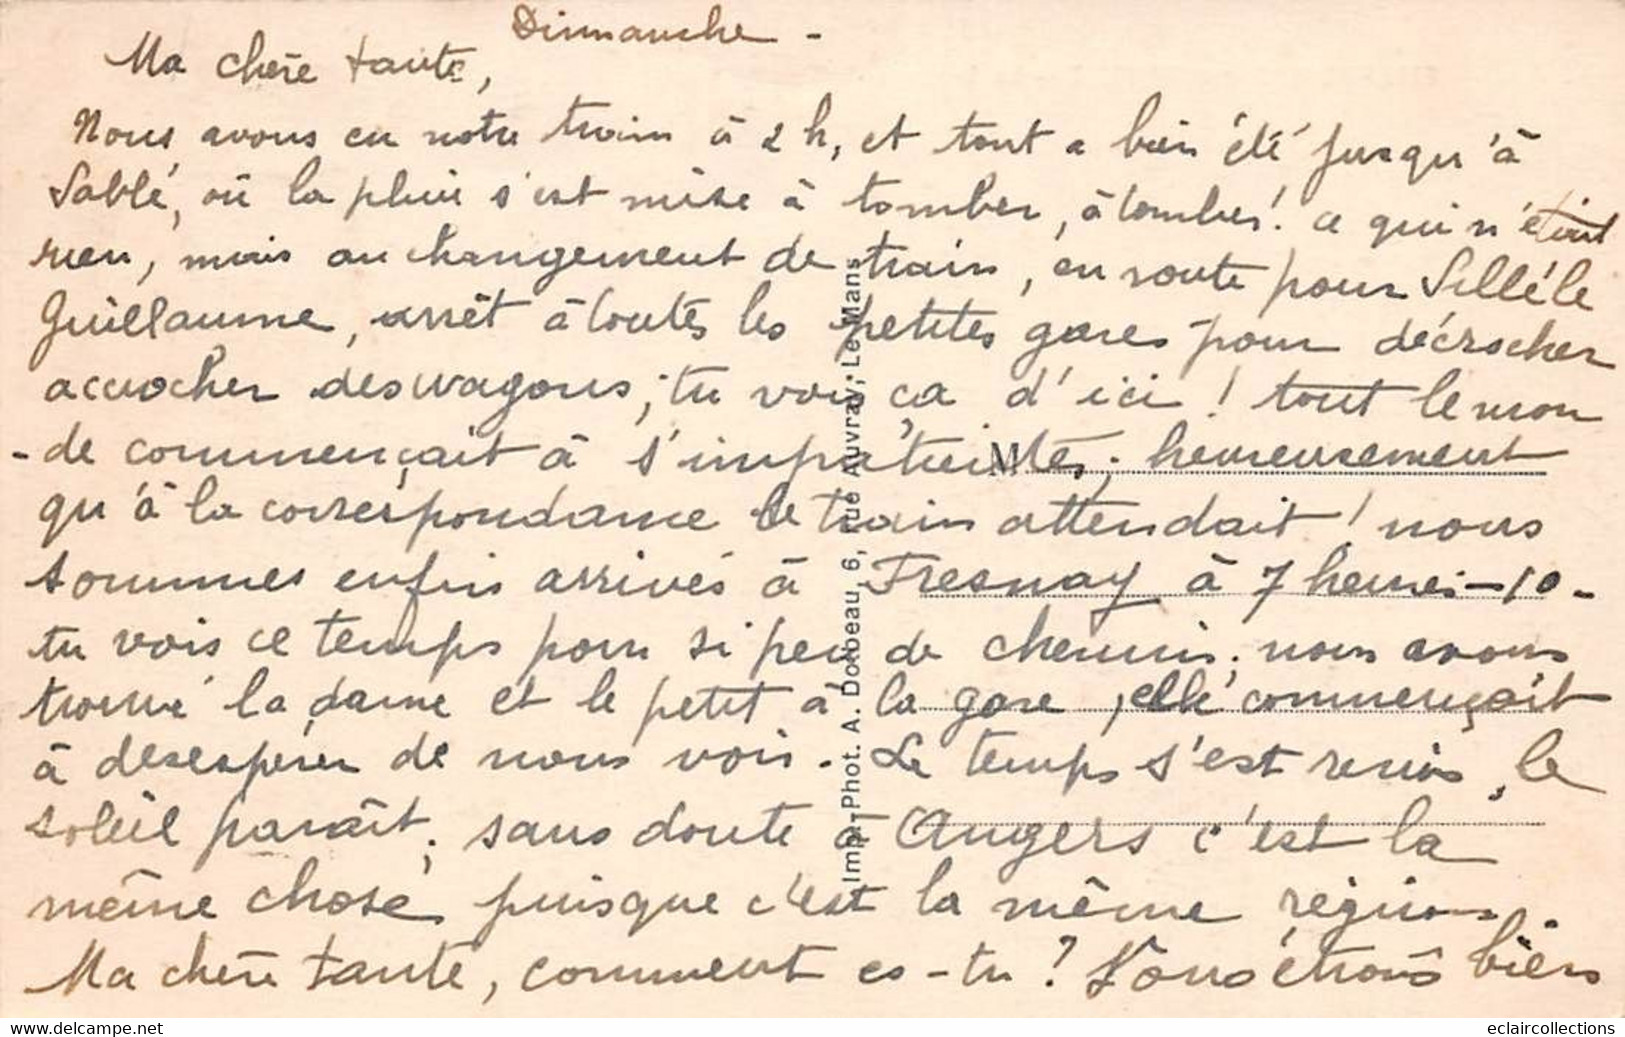 Dimanche -
Ma chère tante,
Nous avons eu notre train à 2 h, et tout a bien été jusqu'à
Sablé, où la pluie s'est mise à tomber, à tombes! ce qui n'était
rien, mais au changement de train, en route pour Sillé le
Guillaume, arrêt à toutes les petites gares pour décrocher
accrocher des wagons; tu vois ça d'ici! tout le mon
-de commençait à s'impatienter; heureusement
qu'à la correspondance le train attendait! nous
sommes enfin arrivés à Fresnay à 7 heures-10-
tu vois ce temps pour si peu de chemin. nous avons
trouvé la dame et le petit à la gare, elle commençait
à desespérer de nous voir. Le temps s'est remis, le
soleil paraît; sans doute à Angers c'est la
même chose, puisque c'est la même région.
Ma chère tante, comment es-tu? Nous étions bien
M
Imp.-Phot. A. Dolbeau, 6, rue Auvray, Le Mans
www.delcampe.net
eclaircollections